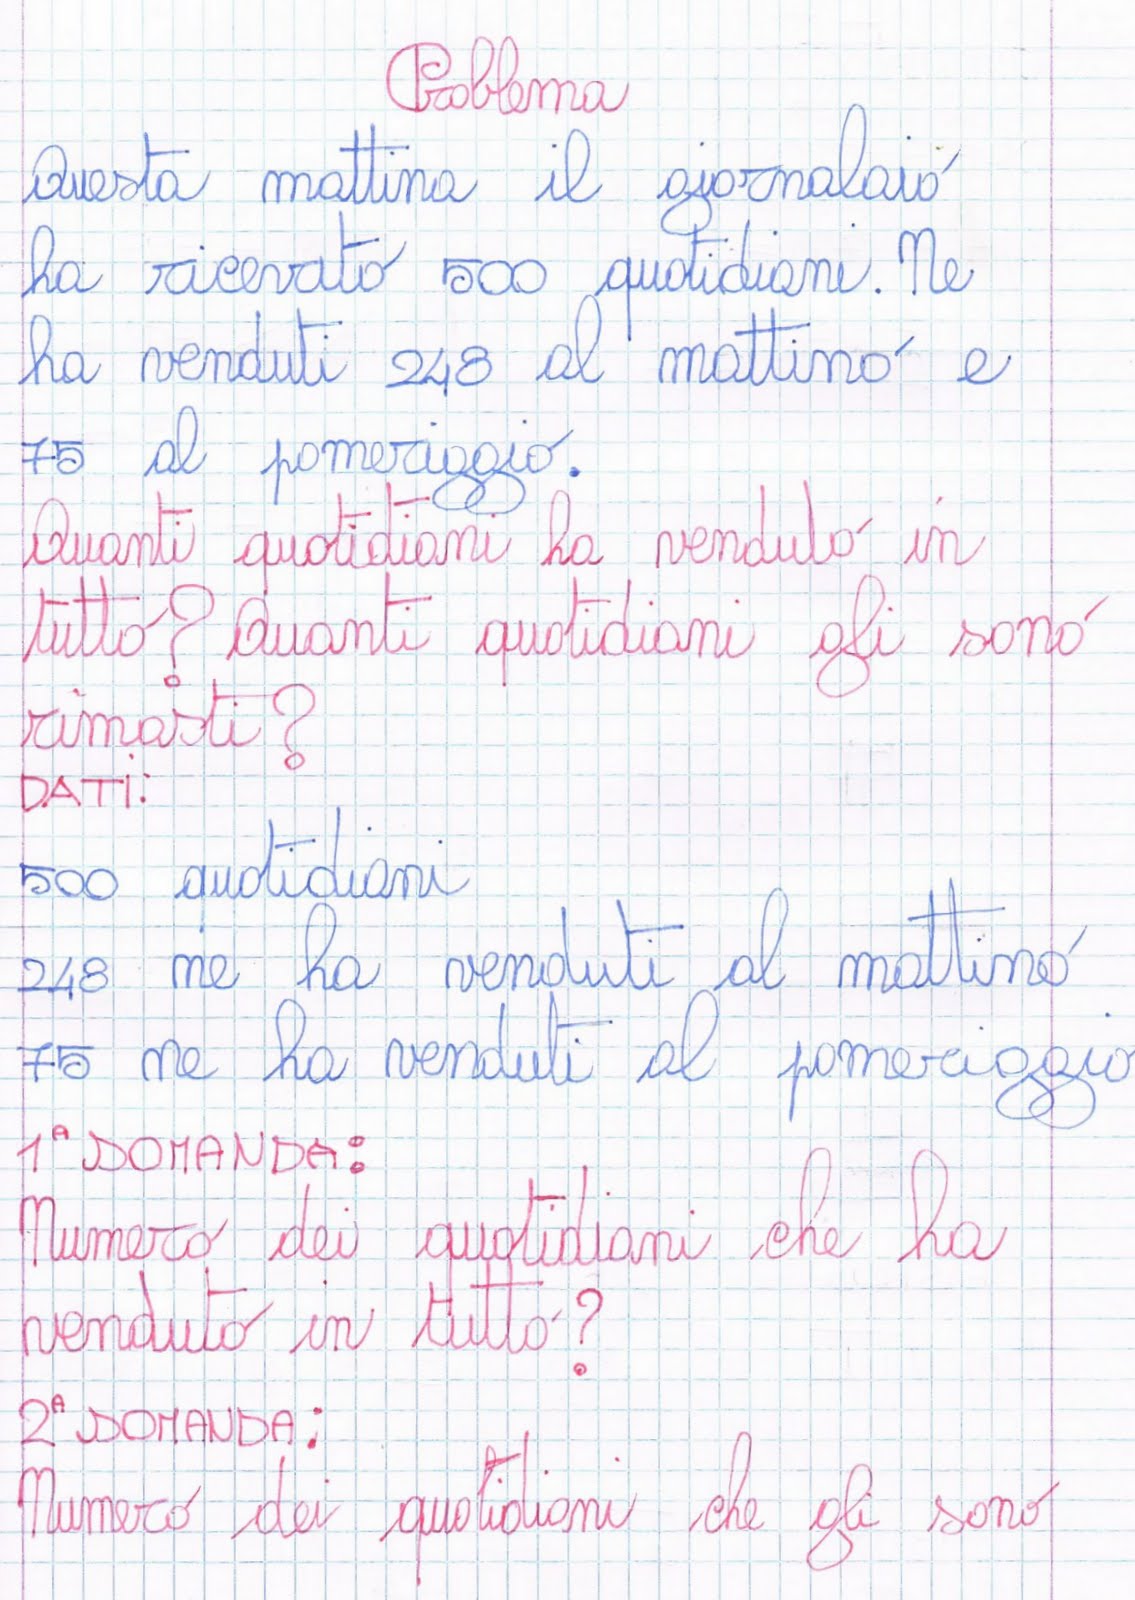 Problema
Questa mattina il giornalaio
ha ricevuto 500 quotidiani. Ne
ha venduti 248 al mattino e
75 al pomeriggio.
Quanti quotidiani ha venduto in
tutto? Quanti quotidiani gli sono
rimasti?
DATI:
500 quotidiani
248 ne ha venduti al mattino
75 ne ha venduti al pomeriggio
1ª DOMANDA:
Numero dei quotidiani che ha
venduto in tutto?
2ª DOMANDA:
Numero dei quotidiani che gli sono